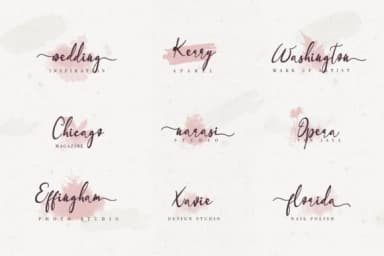 wedding
INSPIRATION
Kerry
APAREL
Washington
MAKE UP ARTIST
Chicago
MAGAZINE
narasi
STUDIO
Opera
VAN JAVA
Effingham
PHOTO STUDIO
Xavie
DESIGN STUDIO
florida
NAIL POLISH